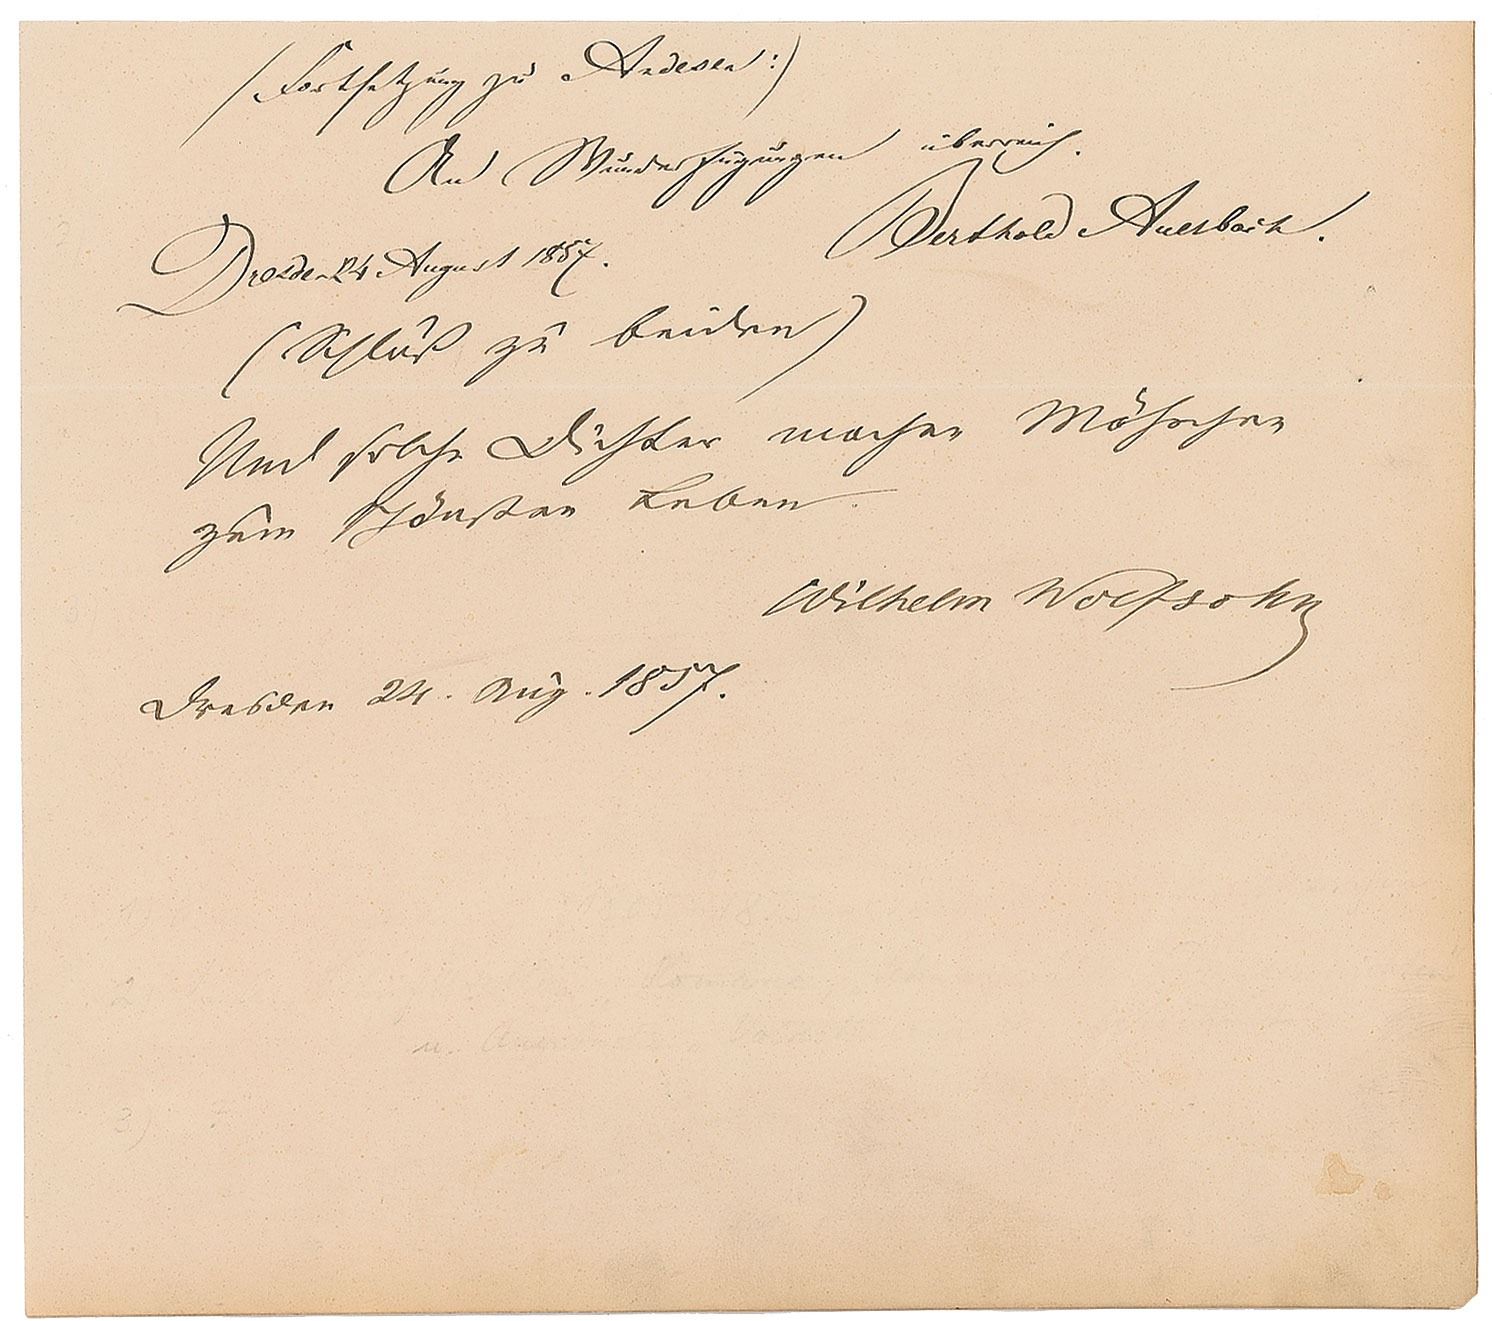 (Fortsetzung zu Andersen:)
An Wunderfügungen überreich.
Berthold Auerbach.
Dresden 24 August 1857.
(Schluß zu beiden)
Und solche Dichter machen Mährchen
zum schönsten Leben.
Wilhelm Wolfsohn
Dresden 24. Aug. 1857.